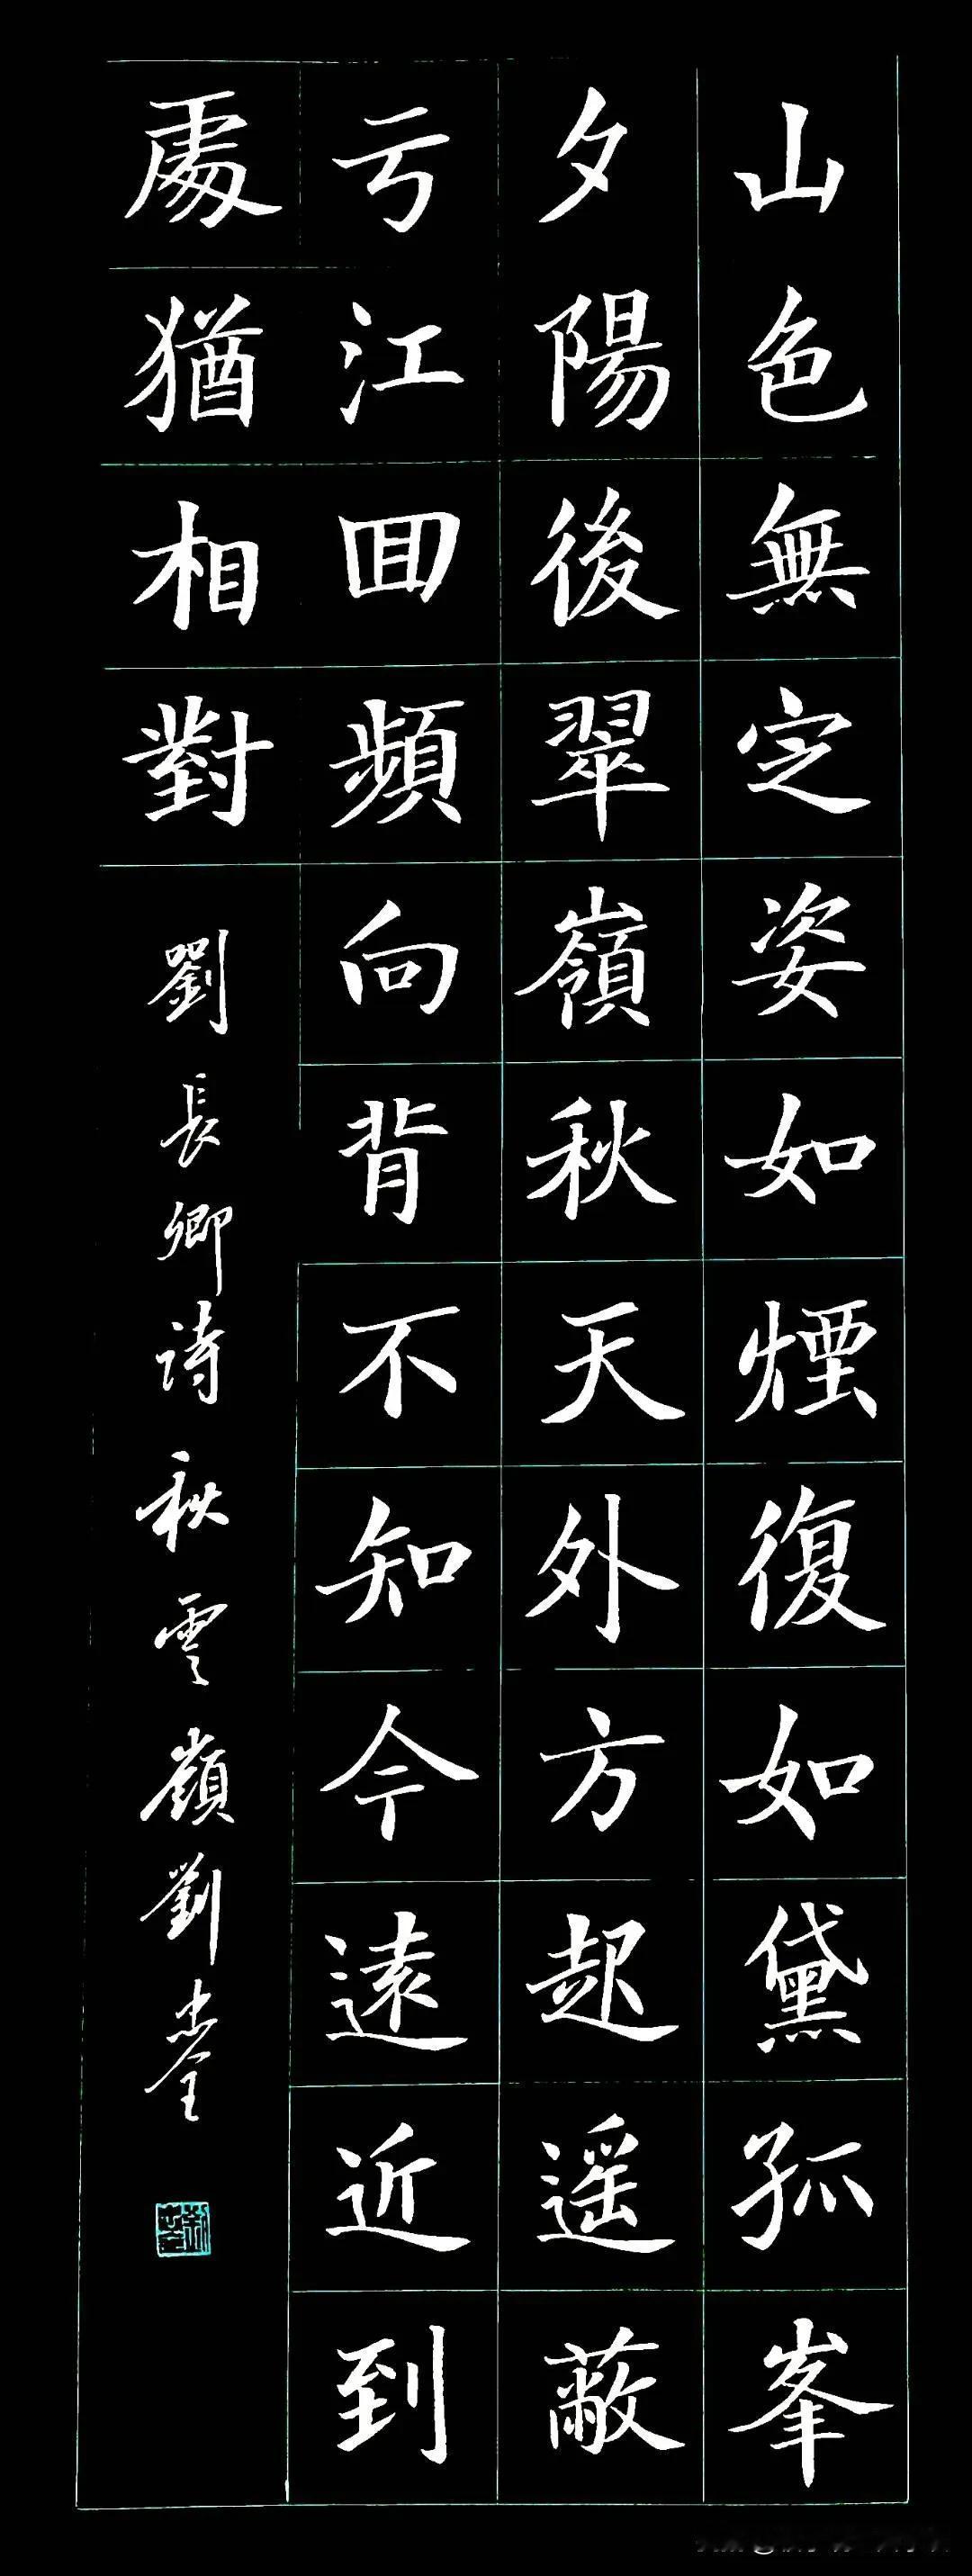 山色無定姿如煙復如黛孤峯
夕陽後翠嶺秋天外方起遥蔽
亏江囬頻向背不知今遠近到
處猶相對劉長卿詩秋雲嶺劉忠全